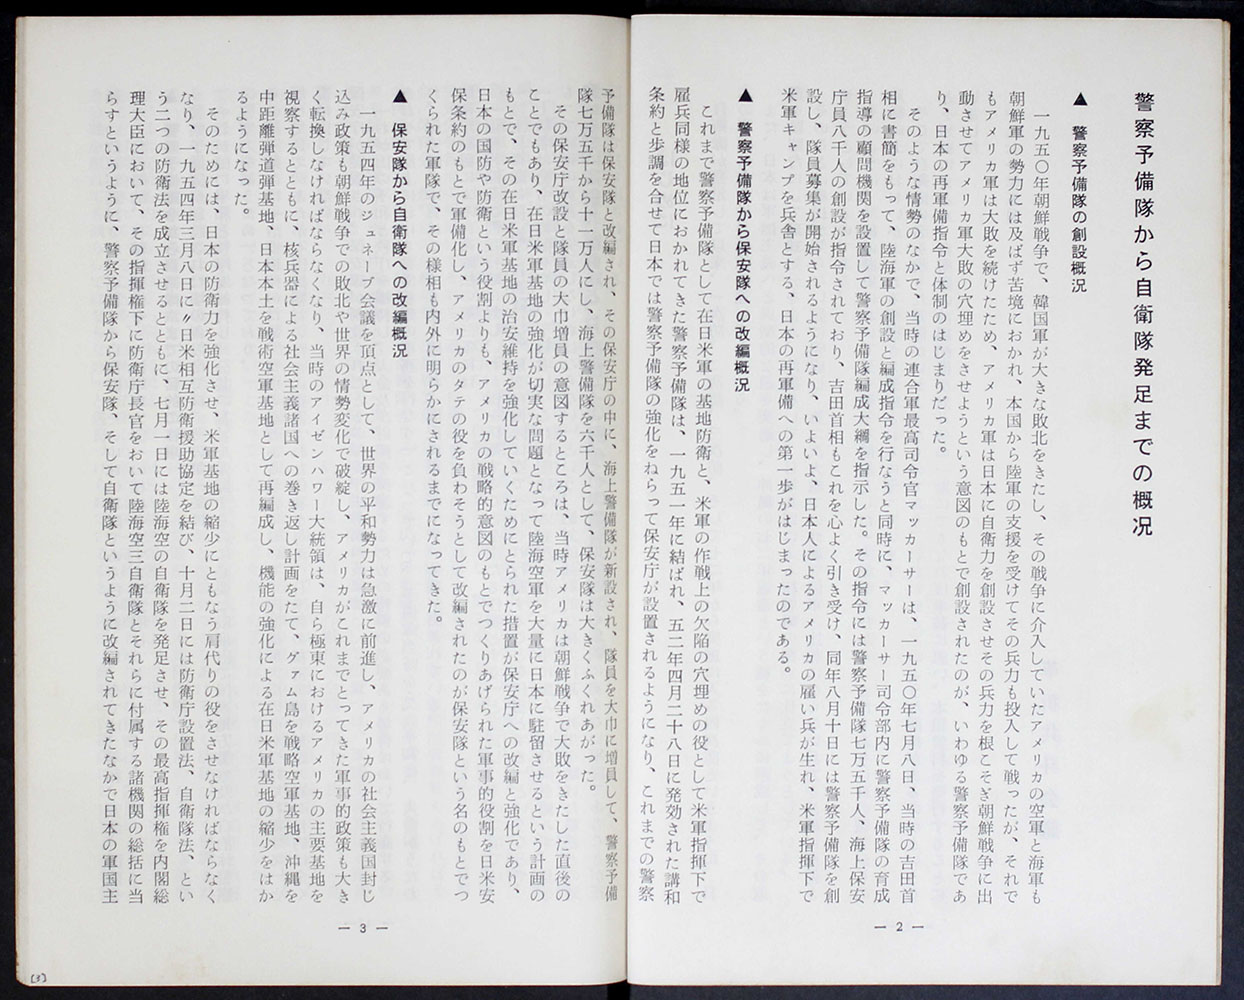 警察予備隊から自衛隊発足までの概況
▲　警察予備隊の創設概況
一九五〇年朝鮮戦争で、韓国軍が大きな敗北をきたし、その戦争に介入していたアメリカの空軍と海軍も
朝鮮軍の勢力には及ばず苦境におかれ、本国から陸軍の支援を受けてその兵力も投入して戦ったが、それで
もアメリカ軍は大敗を続けたため、アメリカ軍は日本に自衛力を創設させその兵力を根こそぎ朝鮮戦争に出
動させてアメリカ軍大敗の穴埋めをさせようという意図のもとで創設されたのが、いわゆる警察予備隊であ
り、日本の再軍備指令と体制のはじまりだった。
そのような情勢のなかで、当時の連合軍最高司令官マッカーサーは、一九五〇年七月八日、当時の吉田首
相に書簡をもって、陸海軍の創設と編成指令を行なうと同時に、マッカーサー司令部内に警察予備隊の育成
指導の顧問機関を設置して警察予備隊編成大綱を指示した。その指令には警察予備隊七万五千人、海上保安
庁員八千人の創設が指令されており、吉田首相もこれを心よく引き受け、同年八月十日には警察予備隊を創
設し、隊員募集が開始されるようになり、いよいよ、日本人によるアメリカの雇い兵が生れ、米軍指揮下で
米軍キャンプを兵舎とする、日本の再軍備への第一歩がはじまったのである。
▲　警察予備隊から保安隊への改編概況
これまで警察予備隊として在日米軍の基地防衛と、米軍の作戦上の欠陥の穴埋めの役として米軍指揮下で
雇兵同様の地位におかれてきた警察予備隊は、一九五一年に結ばれ、五二年四月二十八日に発効された講和
条約と歩調を合せて日本では警察予備隊の強化をねらって保安庁が設置されるようになり、これまでの警察
― 2 ―
予備隊は保安隊と改編され、その保安庁の中に、海上警備隊が新設され、隊員を大巾に増員して、警察予備
隊七万五千から十一万人にし、海上警備隊を六千人として、保安隊は大きくふくれあがった。
その保安庁改設と隊員の大巾増員の意図するところは、当時アメリカは朝鮮戦争で大敗をきたした直後の
ことでもあり、在日米軍基地の強化が切実な問題となって陸海空軍を大量に日本に駐留させるという計画の
もとで、その在日米軍基地の治安維持を強化していくためにとられた措置が保安庁への改編と強化であり、
日本の国防や防衛という役割よりも、アメリカの戦略的意図のもとでつくりあげられた軍事的役割を日米安
保条約のもとで軍備化し、アメリカのタテの役を負わそうとして改編されたのが保安隊という名のもとでつ
くられた軍隊で、その様相も内外に明らかにされるまでになってきた。
▲　保安隊から自衛隊への改編概況
一九五四年のジュネーブ会議を頂点として、世界の平和勢力は急激に前進し、アメリカの社会主義国封じ
込み政策も朝鮮戦争での敗北や世界の情勢変化で破綻し、アメリカがこれまでとってきた軍事的政策も大き
く転換しなければならなくなり、当時のアイゼンハワー大統領は、自ら極東におけるアメリカの主要基地を
視察するとともに、核兵器による社会主義諸国への巻き返し計画をたて、グァム島を戦略空軍基地、沖縄を
中距離弾道弾基地、日本本土を戦術空軍基地として再編成し、機能の強化による在日米軍基地の縮少をはか
るようになった。
そのためには、日本の防衛力を強化させ、米軍基地の縮少にともなう肩代りの役をさせなければならなく
なり、一九五四年三月八日に〃日米相互防衛援助協定を結び、十月二日には防衛庁設置法、自衛隊法、とい
う二つの防衛法を成立させるとともに、七月一日には陸海空の自衛隊を発足させ、その最高指揮権を内閣総
理大臣において、その指揮権下に防衛庁長官をおいて陸海空三自衛隊とそれらに付属する諸機関の総括に当
らすというように、警察予備隊から保安隊、そして自衛隊というように改編されてきたなかで日本の軍国主
― 3 ―
[3]